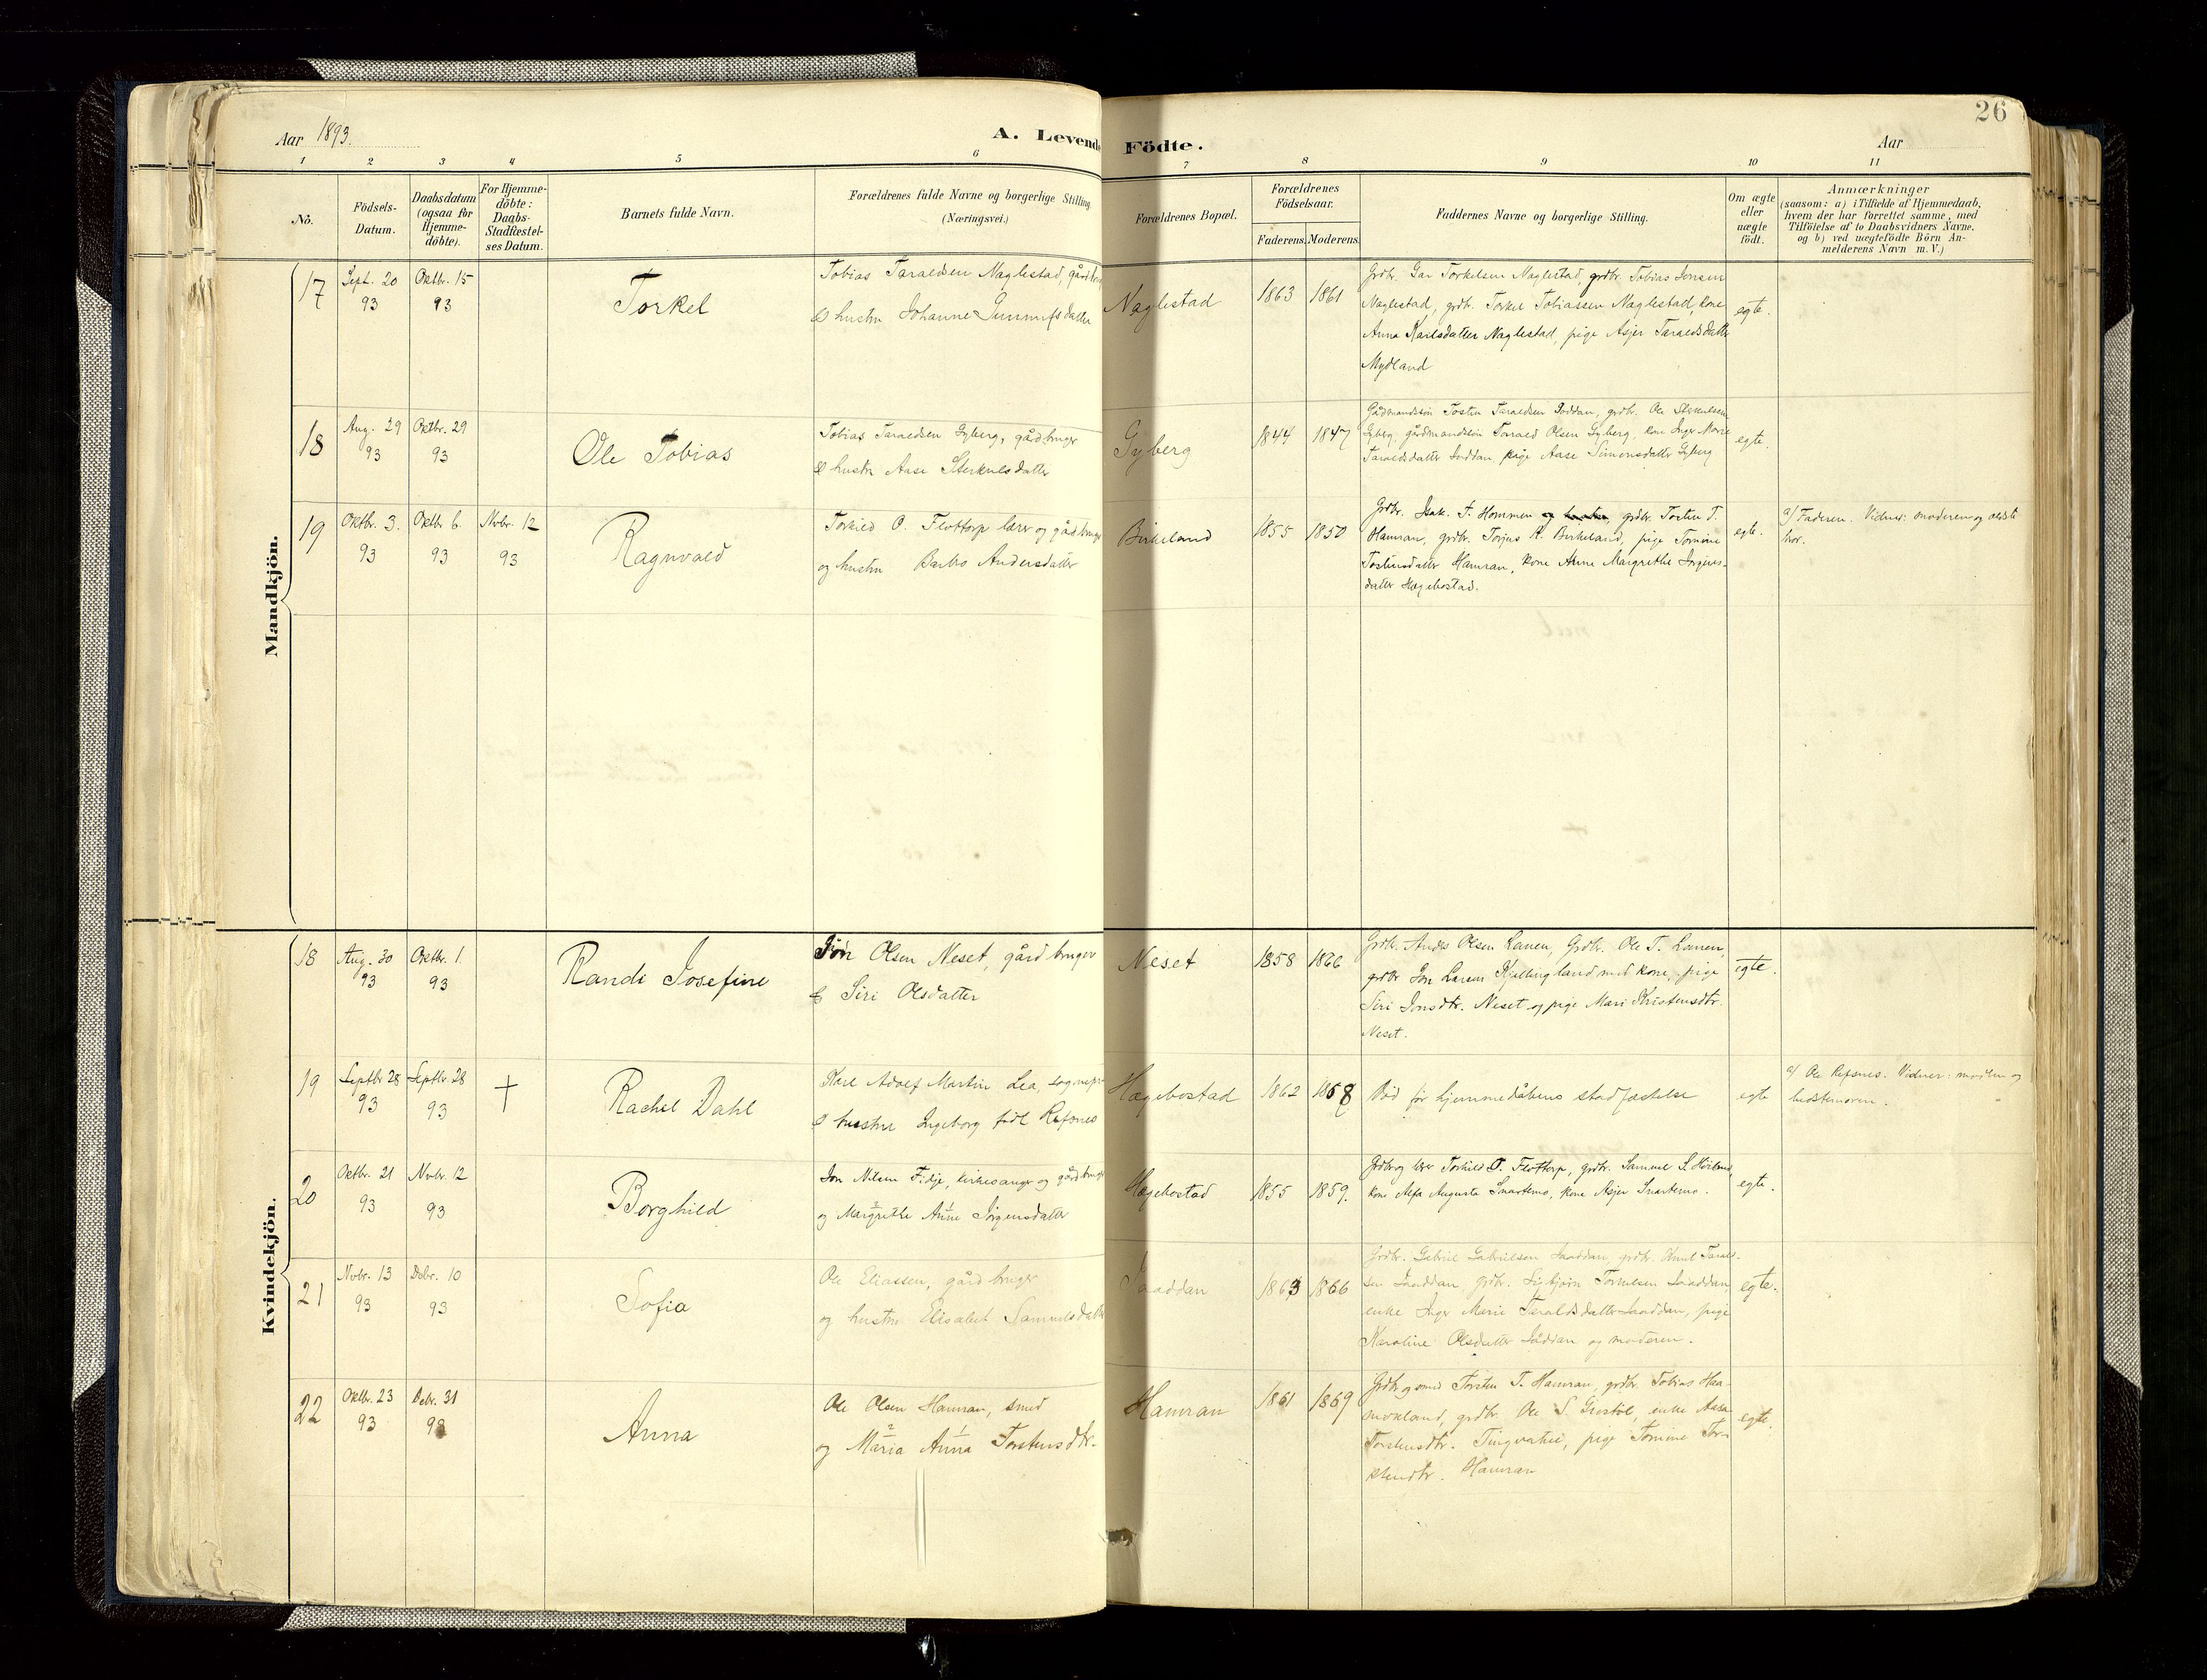 26
Aar 1893.
A. Levende Födte.
Aar
1 2 3 4 5 6 7 8 9 10 11
No. Födsels-Datum. Daabsdatum (ogsaa for Hjemme-döbte). For Hjemme-döbte: Daabs-Stadfæstel-ses Datum. Barnets fulde Navn. Forældrenes fulde Navne og borgerlige Stilling (Næringsvei.) Forældrenes Bopæl. Forældrenes Födselsaar. Faderens. Moderens. Faddernes Navne og borgerlige Stilling. Om ægte eller uægte födt. Anmærkninger (saasom: a) i Tilfælde af Hjemmedaab, hvem der har forrettet samme, med Tilföielse af to Daabsvidners Navne. og b) ved uægtefödte Börn An-melderens Navn m. V.)
Mandkjön.
17 Sept. 20 93 Oktbr. 15 93 Torkel
Tobias Taraldsen Naglestad,
hustru Johanne
Naglestad 1863 1861
Grdbr. Torkelsen Naglestad, grdbr. Tobias Jonsen
Naglestad, grdb. Torkel Tobiassen Naglestad, kone
Anna Karlsdatter Naglestad, pige Asjer Taraldsdatter
Mydland
egte.
18 Aug. 29 93 Oktbr. 29 93 Ole Tobias
Tobias Taraldsen Gyberg, gårdbruger
& hustru Aase Sterkulsdatter
Gyberg 1844 1847
Gådmandssön Tosten Taraldsen grdbr. Ole
Gyberg, gårdmandssön Tarald Olsen Gyberg, kone Inger Marie
Taraldsdatter pige Aase Simonsdatter Gyberg
egte.
19 Oktbr. 3. 93 Oktbr 6. 93 Nvbr. 12 93 Ragnvald
Torkild O. Flottorp lærer og gårdbruger
og hustru Barbro Andersdatter
Birkeland 1855 1850
Grdbr. Isak. F. Hommen og grdbr. Tosten T.
Hamran, grdbr. Torjus A. Birkeland, pige Tomine
Tostensdatter Hamran, kone Anne Margrethe Jørgens-
datter Hægebostad.
egte.
a/ Faderen. Vidner: moderen og ældste
Kvindekjön.
18 Aug. 30 93 Oktbr. 1. 93 Randi Josefine
Jøn Olsen Neset, gårdbruger
& Siri Olsdatter
Neset 1858 1866
Grdbr. Anders Olsen Lauen, Grdbr. Ole T. Lauen,
grdbr Jon Larsen Kjellingland med kone, pige
Siri Jonsdtr. Neset og pige Mari Kristensdtr.
Neset.
egte.
19 Septbr 28 93 Septbr. 28 93 † Rachel Dahl
Karl Adolf Martin Lea, sognepr
& hustru Ingeborg født Refsnes
Hægebostad 1862 1868
Död før hjemmedåbens stadfæstelse
egte
a/ Ole Refsnes. Vidner: moderen og
bedstemoren.
20 Oktbr. 21 93 Nvbr. 12 93 Borghild
Jon Nilsen Fidje, kirkesanger og gårdbruger
og Margrethe Anne Jørgensdatter
Hægebostad 1855 1859.
Grdbr og lærer Torkild O. Flottorp, grdbr. Samuel S.
kone Alfa Augusta Snartemo, kone Asjer Snartemo.
egte.
21 Nvbr. 13 93 Debr. 10 93 Sofia
Ole Eliassen, gårdbruger
og hustru Elisabet Samuelsdatter
Snaddan 1863 1866
Grdbr. Gabriel Gabrielsen grdbr. Knut Tarald-
sen grdbr. Sigbjørn Torkelsen
enke Inger Marie Taraldsdatter pige
Karoline Olsdatter og moderen.
egte.
22 Oktbr. 23 93 Debr. 31 93 Anna
Ole Olsen Hamran, smed
og Maria Anna Torstensdtr.
Hamran 1861 1869
Grdbr og smed Torsten T. Hamran, grdbr. Tobias Haa-
grdbr. Ole S. enke Aasa
Torstensdtr. Tingvatn, pige Tomine Tor-
stensdtr. Hamran
egte.